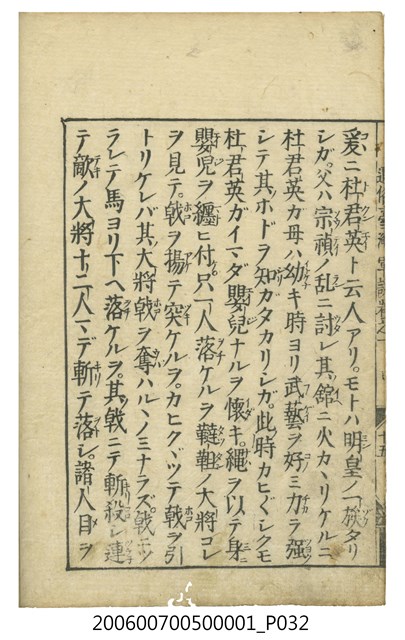 爰ニ杜君英ト云人アリ。モトハ明皇ノ一族タリ
シガ。父ハ宗禎ノ乱ニ討レ其舘ニ火カヽリケルニ
杜君英カ母ハ幼キ時ヨリ武藝ヲ好ミ力ラ强
シテ其ホドヲ知ガタカリシガ。此時カヒ〴〵シクモ
杜君英ガイマダ嬰兒ナルヲ懐キ。縄ヲ以テ身ニ
嬰児ヲ纒ヒ付。只一人落ケルヲ韃靼ノ大將コレ
ヲ見テ。戟ヲ揚テ突ケルヲ。カヒクヾツテ戟ヲ引
トリケレバ其大將戟ヲ奪ハルヽノミナラズ。戟モツ
ラレテ馬ヨリ下ヘ落ケルヲ。其戟ニテ斬殺シ連
テ敵ノ大將十二人マデ斬テ落シ。諸人目ヲ
十五
200600700500001_P032